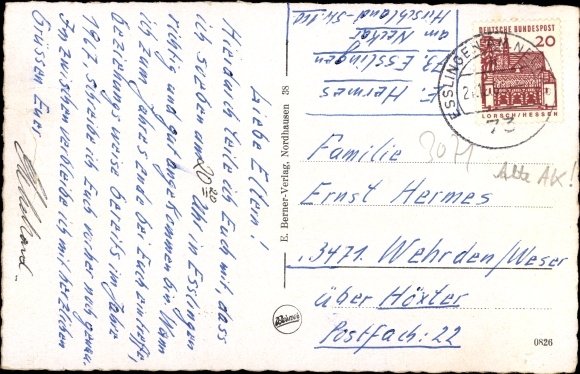 Liebe Eltern!
Hierdurch teile ich Euch mit, dass
ich soeben um 20 Uhr in Esslingen
richtig und gut angekommen bin. Wann
ich zum Jahresende bei Euch eintreffe,
beziehungsweise bereits im Jahre
1917, schreibe ich Euch vorher noch genau.
Inzwischen verbleibe ich mit herzlichen
Grüssen Euer
E. Berner-Verlag, Nordhausen 38
Berner
F. Hermes
73 Esslingen
am Neckar
Hirschland-Str.
DEUTSCHE BUNDESPOST
20
LORSCH/HESSEN
ESSLINGEN
73
3071
Alte AK!
Familie
Ernst Hermes
3471 Wehrden/Weser
über Höxter
Postfach: 22
0826